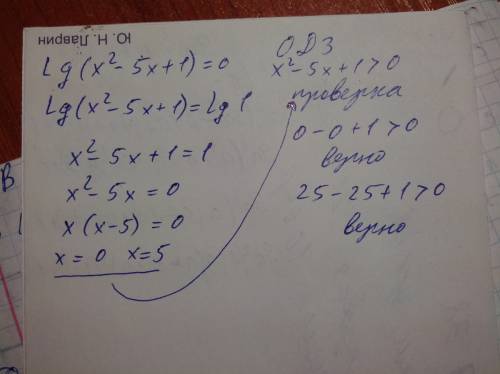 Ю. Н. Лаврин
Lg(x²-5x+1)=0
Lg(x²-5x+1)=Lg 1
x²-5x+1=1
x²-5x=0
x(x-5)=0
x=0 x=5
ОДЗ
x²-5x+1>0
проверка
0-0+1>0
верно
25-25+1>0
верно
В